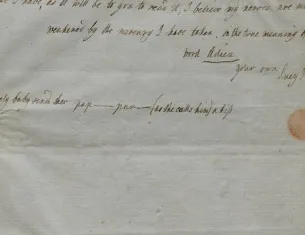 I have, as it will be to you to read it, I believe my nerves are
weakened by the mercury I have taken. in the true meaning of
word Adieu
your own Lucy
baby send her pap — pa — (as she calls him) a kiss